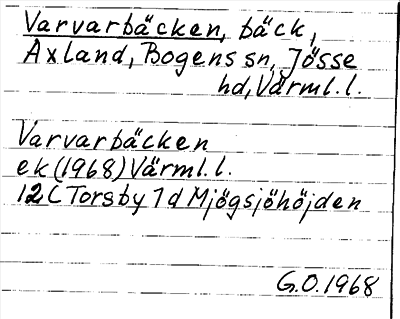 Varvarbäcken, bäck,
Axland, Bogens sn, Jösse
hd, Värml. l.
Varvarbäcken
ek (1968) Värml. l.
12C Torsby 7d Mjögsjöhöjden
G.O. 1968